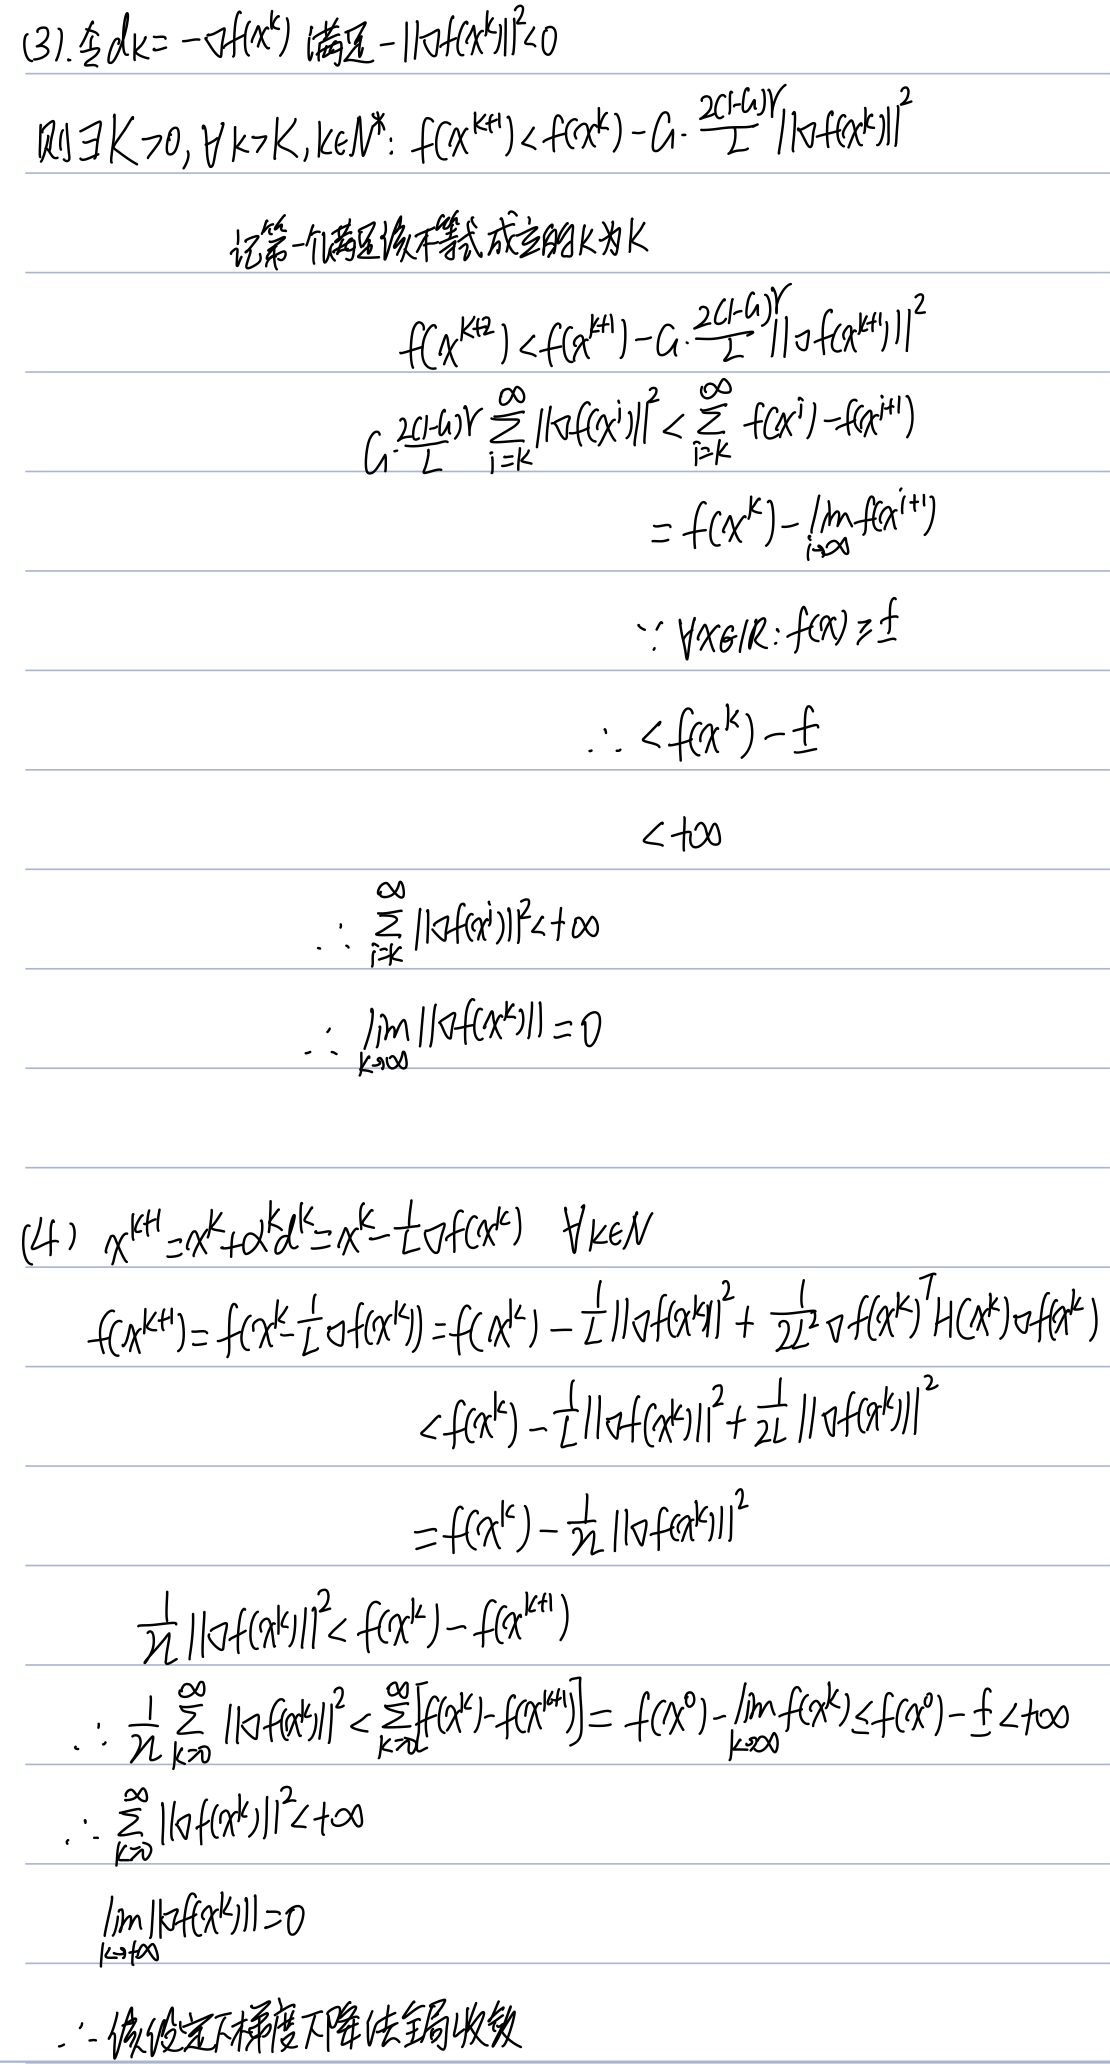 (3). 令 dk = -∇f(x^k) 满足 -||∇f(x^k)||^2 < 0
则 ∃K>0, ∀k>K, k∈N*: f(x^{k+1}) < f(x^k) - C₁·\frac{2(1-C₁)γ}{L} ||∇f(x^k)||^2
记第一个满足该不等式成立的k为K
f(x^{k+2}) < f(x^{k+1}) - C₁·\frac{2(1-C₁)γ}{L} ||∇f(x^{k+1})||^2
C₁·\frac{2(1-C₁)γ}{L} \sum_{i=k}^{∞} ||∇f(x^i)||^2 < \sum_{i=k}^{∞} f(x^i) - f(x^{i+1})
= f(x^k) - \lim_{i→∞} f(x^{i+1})
∵ ∀x∈R: f(x) ≥ \underline{f}
∴ < f(x^k) - \underline{f}
< +∞
∴ \sum_{i=k}^{∞} ||∇f(x^i)||^2 < +∞
∴ \lim_{k→∞} ||∇f(x^k)|| = 0
(4) x^{k+1} = x^k + α^k d^k = x^k - \frac{1}{L}∇f(x^k) ∀k∈N
f(x^{k+1}) = f(x^k - \frac{1}{L}∇f(x^k)) = f(x^k) - \frac{1}{L}||∇f(x^k)||^2 + \frac{1}{2L^2}∇f(x^k)^T H(x^k)∇f(x^k)
< f(x^k) - \frac{1}{L}||∇f(x^k)||^2 + \frac{1}{2L}||∇f(x^k)||^2
= f(x^k) - \frac{1}{2L}||∇f(x^k)||^2
\frac{1}{2L}||∇f(x^k)||^2 < f(x^k) - f(x^{k+1})
∴ \frac{1}{2L} \sum_{k=0}^{∞} ||∇f(x^k)||^2 < \sum_{k=0}^{∞} [f(x^k) - f(x^{k+1})] = f(x^0) - \lim_{k→∞} f(x^k) ≤ f(x^0) - \underline{f} < +∞
∴ \sum_{k=0}^{∞} ||∇f(x^k)||^2 < +∞
\lim_{k→+∞} ||∇f(x^k)|| = 0
∴ 该设定下梯度下降法全局收敛